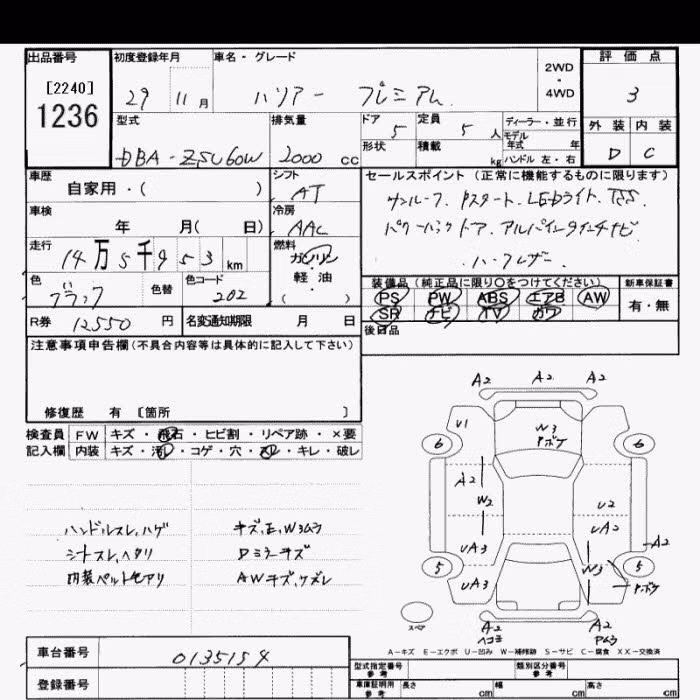 出品番号
[2240]
1236
初度登録年月
29 11 月
車名・グレード
ハリアー プレミアム
2WD
・
4WD
評 価 点
3
外 装 内 装
D C
型式
DBA-ZSU60W
排気量
2000 cc
ドア
5
定員
5 人
形状
積載
kg
ディーラー・並行
モデル
年式 年
ハンドル 左・右
車歴
自家用・( )
シフト
AT
車検
年 月( 日)
冷房
AAC
走行
14万5千953 km
燃料
ガソリン
軽・油
( )
色
ブラック
色替
色コード
202
R券 12550 円
名変通知期限 月 日
セールスポイント(正常に機能するものに限ります)
サンルーフ. Pスタート. LEDライト. TSS.
パワーバックドア. アルパイン9インチナビ
ハーフレザー
装備品(純正品に限り○をつけてください)
PS PW ABS エアB AW
SR ナビ TV カワ
新車保証書
有・無
後日品
注意事項申告欄(不具合内容等は具体的に記入して下さい)
修復歴 有 [箇所 ]
検査員 FW キズ・飛石・ヒビ割・リペア跡・×要
記入欄 内装 キズ・汚レ・コゲ・穴・スレ・キレ・破レ
ハンドルスレ,ハゲ
シートスレ,ヘタリ
内装ペットモアリ
キズ,E,W3ムラ
Dミラーキズ
AWキズ,ケズレ
A2 A2 A2
U1
W3
Pボケ
6 6
A2
W2
U2
UA3
UA2
A2
5 5
UA3
W3
Pボケ
A2
ヘコミ
A2
Pムラ
スペア
A-キズ E-エクボ U-凹み W-補修跡 S-サビ C-腐食 XX-交換済
車台番号
0135154
登録番号
型式指定番号
参考
類別区分番号
参考
車庫証明用
参考
長さ cm
幅 cm
高さ cm